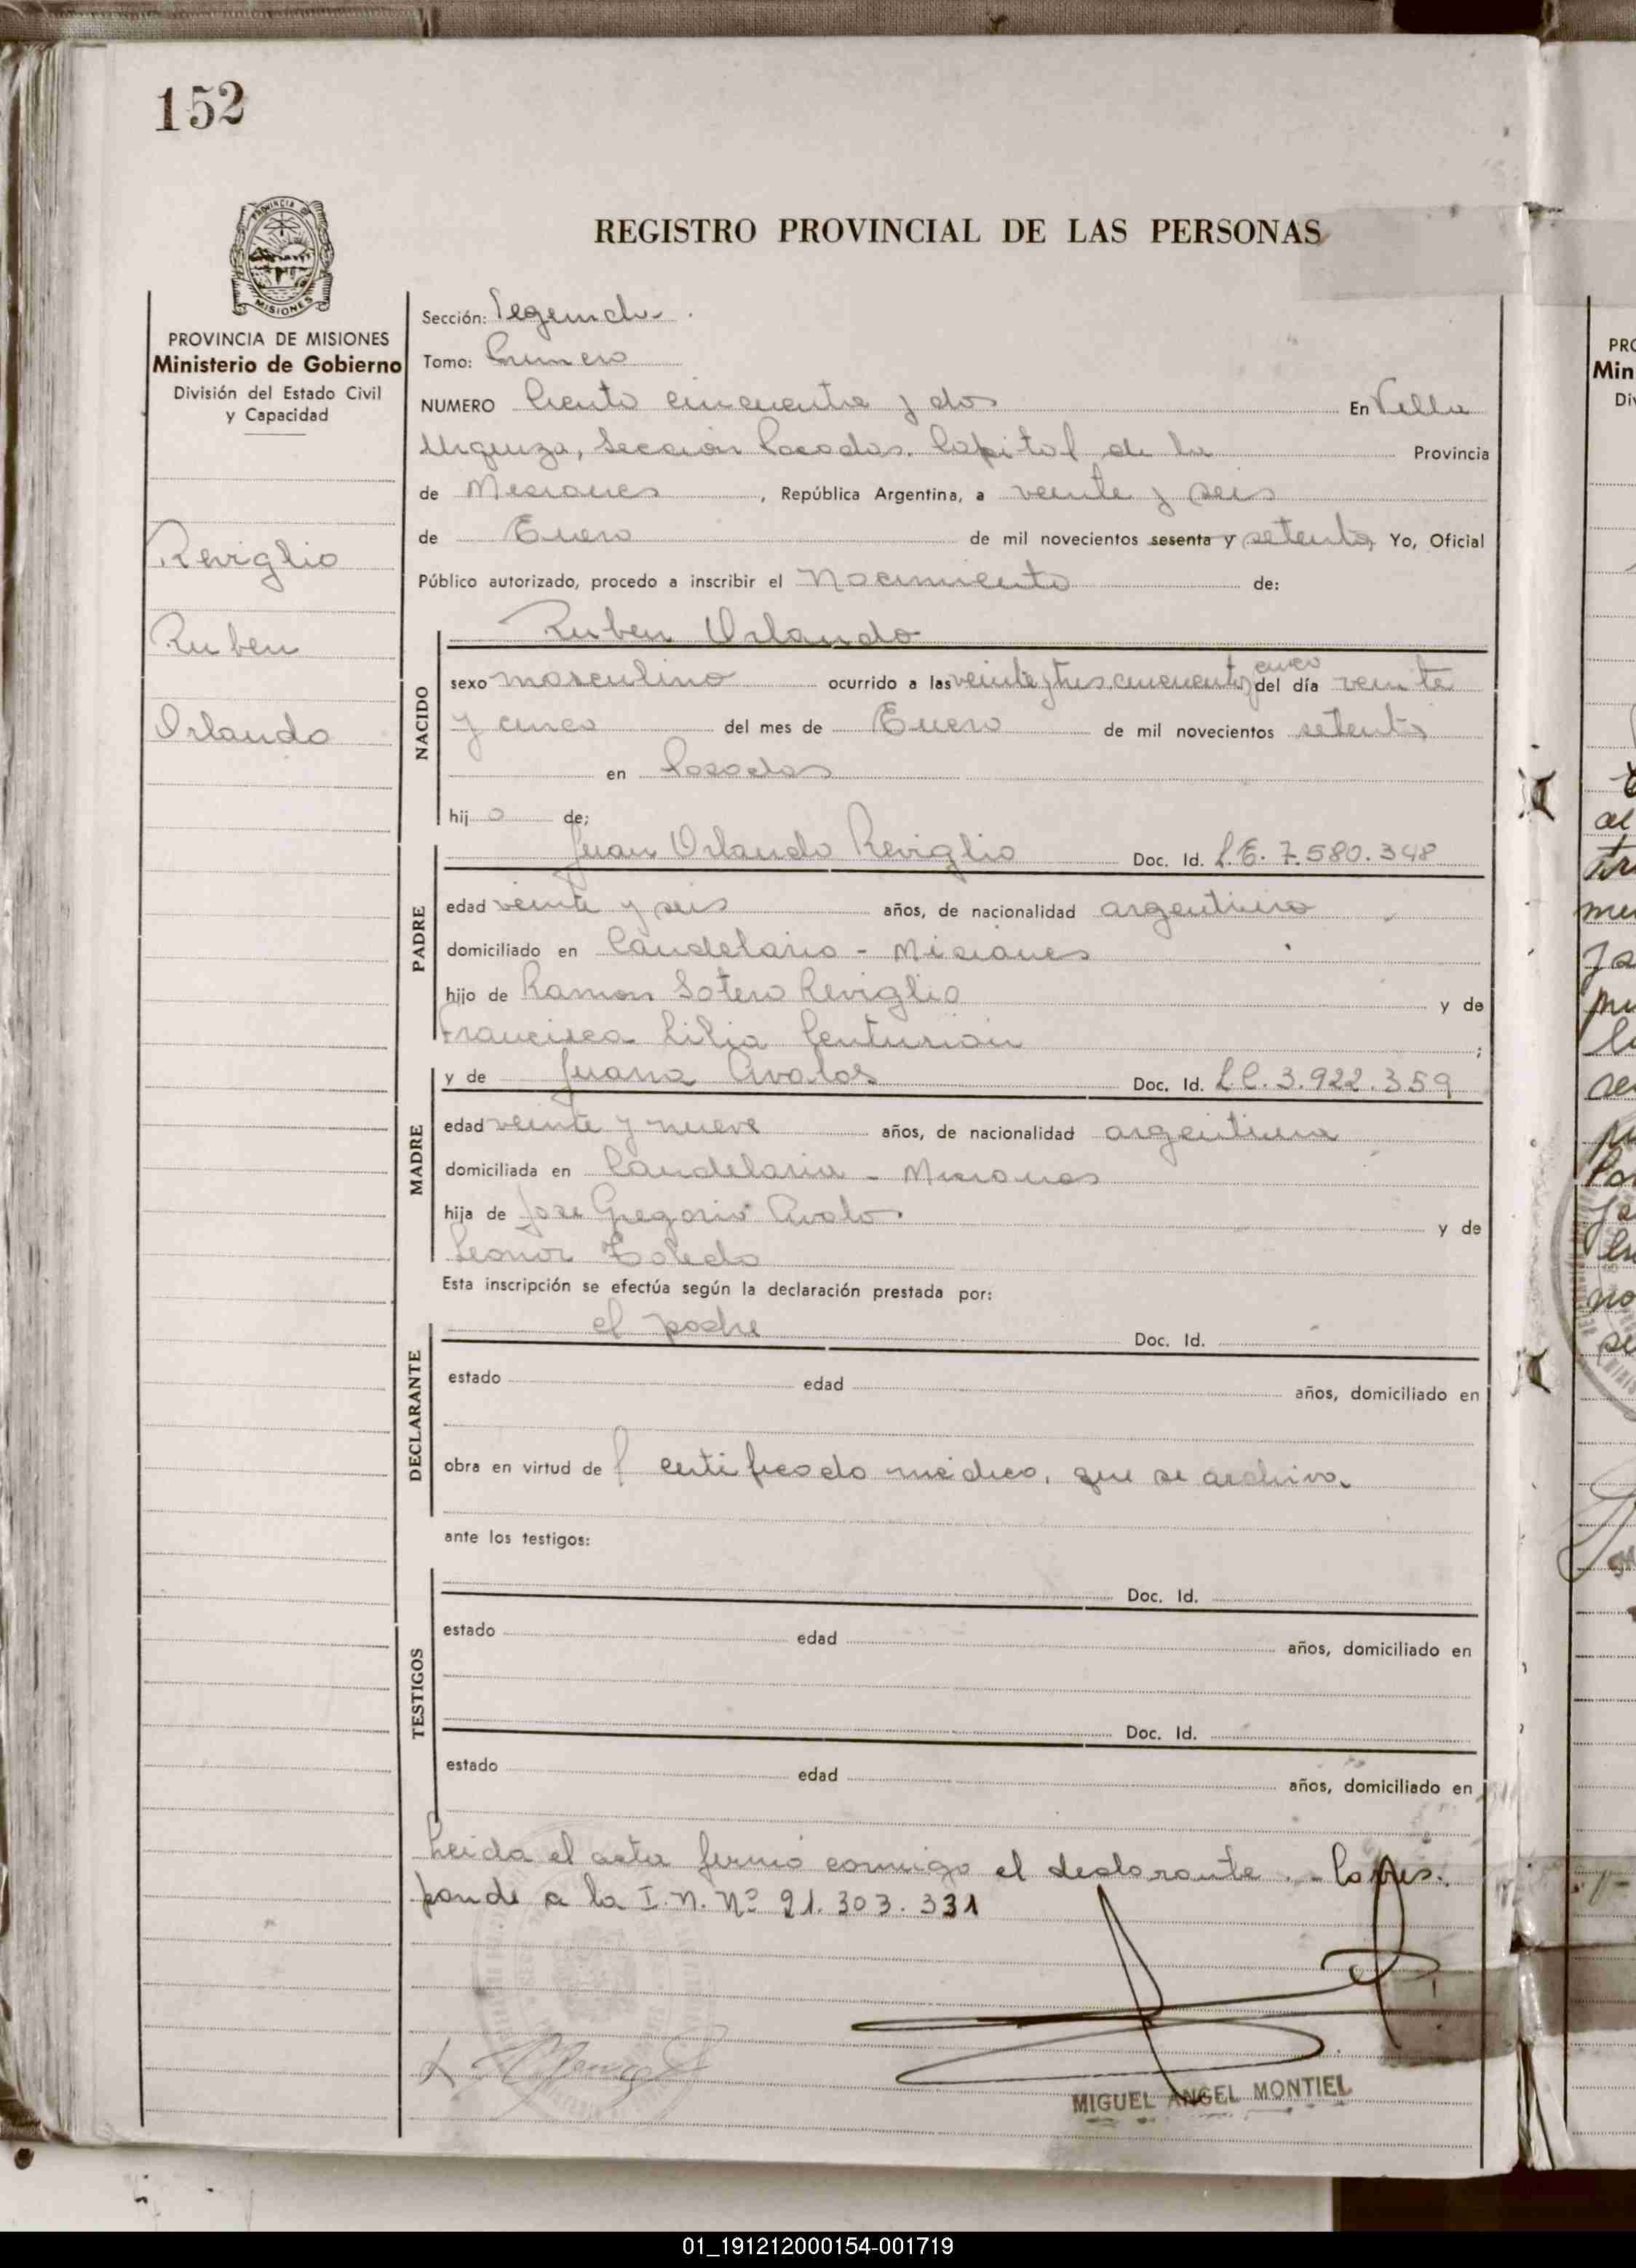 152
PROVINCIA DE MISIONES
Ministerio de Gobierno
División del Estado Civil
y Capacidad
Reviglio
Ruben
Orlando
REGISTRO PROVINCIAL DE LAS PERSONAS
Sección: Segunda.
Tomo: Primero
NUMERO Ciento cincuenta y dos En Villa
Urquiza, Sección Posadas. Capital de la Provincia
de Misiones, República Argentina, a veinte y seis
de Enero de mil novecientos sesenta y setenta, Yo, Oficial
Público autorizado, procedo a inscribir el nacimiento de:
NACIDO
Ruben Orlando
sexo masculino ocurrido a las veinte y tres, cincuenta y cinco del día veinte
y cinco del mes de Enero de mil novecientos setenta
en Posadas
hijo de;
PADRE
Juan Orlando Reviglio Doc. Id. L.E. 7.580.348
edad veinte y seis años, de nacionalidad argentino
domiciliado en Candelaria - Misiones
hijo de Ramon Sotero Reviglio y de
Francisca Lilia Centurión ;
MADRE
y de Juana Avalos Doc. Id. L.C. 3.922.359
edad veinte y nueve años, de nacionalidad argentina
domiciliada en Candelaria - Misiones
hija de Jose Gregorio Avalos y de
Leonor Toledo
Esta inscripción se efectúa según la declaración prestada por:
DECLARANTE
el padre Doc. Id.
estado edad años, domiciliado en
obra en virtud de certificado médico, que se archiva.
ante los testigos:
TESTIGOS
Doc. Id.
estado edad años, domiciliado en
Doc. Id.
estado edad años, domiciliado en
Leida el acta firmó conmigo el declarante. - Corres.
ponde a la I.N. Nº 21.303.331
MIGUEL ANGEL MONTIEL
01_191212000154-001719